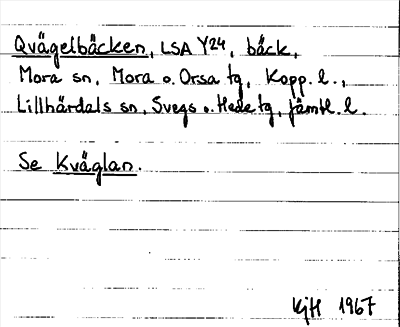 Qvägelbäcken, LSA Y24, bäck,
Mora sn, Mora o. Orsa tg, Kopp. l.,
Lillhärdals sn, Svegs o. Hede tg, Jämtl. l.
Se Kväglan.
KjH 1967